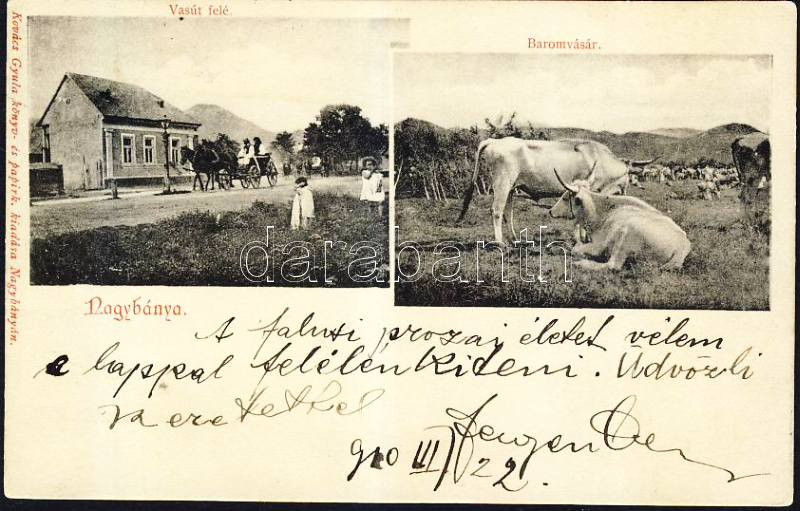 Vasút felé.
Baromvásár.
Kovács Gyula könyv- és papirk. kiadása Nagybányán.
darabanth
Nagybánya.
A falusi prozaj életet vélem
e lappal felélénkiteni. Üdvözli
szeretettel
910 III/22.